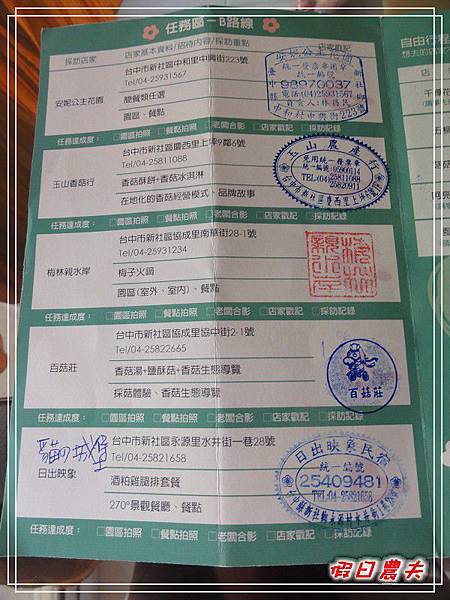 任務區－B路線
採訪店家
店家基本資料/招待內容/採訪重點
店家戳記
安妮公主花園
台中市新社區中和里中興街223號
Tel/04-25931567
簡餐類任選
園區、餐點
安妮公主花園
統一發票專用章
統一編號
98970037
電話:(04)25931567
負責人:林錫民
中和村中興街223號
任務達成度： □園區拍照 □餐點拍照 □老闆合影 □店家戳記 □採訪記錄
玉山香菇行
台中市新社區慶西里上坪9鄰6號
Tel/04-25811088
香菇酥餅+香菇冰淇淋
在地化的香菇經營模式、品牌故事
玉山農產行
免用統一發票章
統一編號:05900114
TEL(04)25811088
25820911
任務達成度： □園區拍照 □餐點拍照 □老闆合影 □店家戳記 □採訪記錄
梅林親水岸
台中市新社區協成里南華街28-1號
Tel/04-25931234
梅子火鍋
園區(室外、室內)、餐點
梅林親水岸
任務達成度： □園區拍照 □餐點拍照 □老闆合影 □店家戳記 □採訪記錄
百菇莊
台中市新社區協成里協中街2-1號
Tel/04-25822665
香菇湯+鹽酥菇+香菇生態導覽
採菇體驗、香菇生態導覽
百菇莊
任務達成度： □園區拍照 □餐點拍照 □老闆合影 □店家戳記 □採訪記錄
貓的城堡
日出映象
台中市新社區永源里水井街一巷28號
Tel/04-25821658
酒粕雞腿排套餐
270°景觀餐廳、餐點
日出映象民宿
統一編號
25409481
TEL:04-25821658
任務達成度： □園區拍照 □餐點拍照 □老闆合影 □店家戳記 □採訪記錄
自由行程
想去的店家
假日農夫